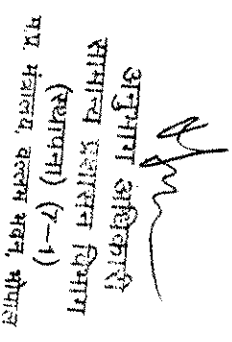 अनुभाग अधिकारी
सामान्य प्रशासन विभाग
(स्थापना) (7-1)
म.प्र. मंत्रालय, वल्लभ भवन, भोपाल